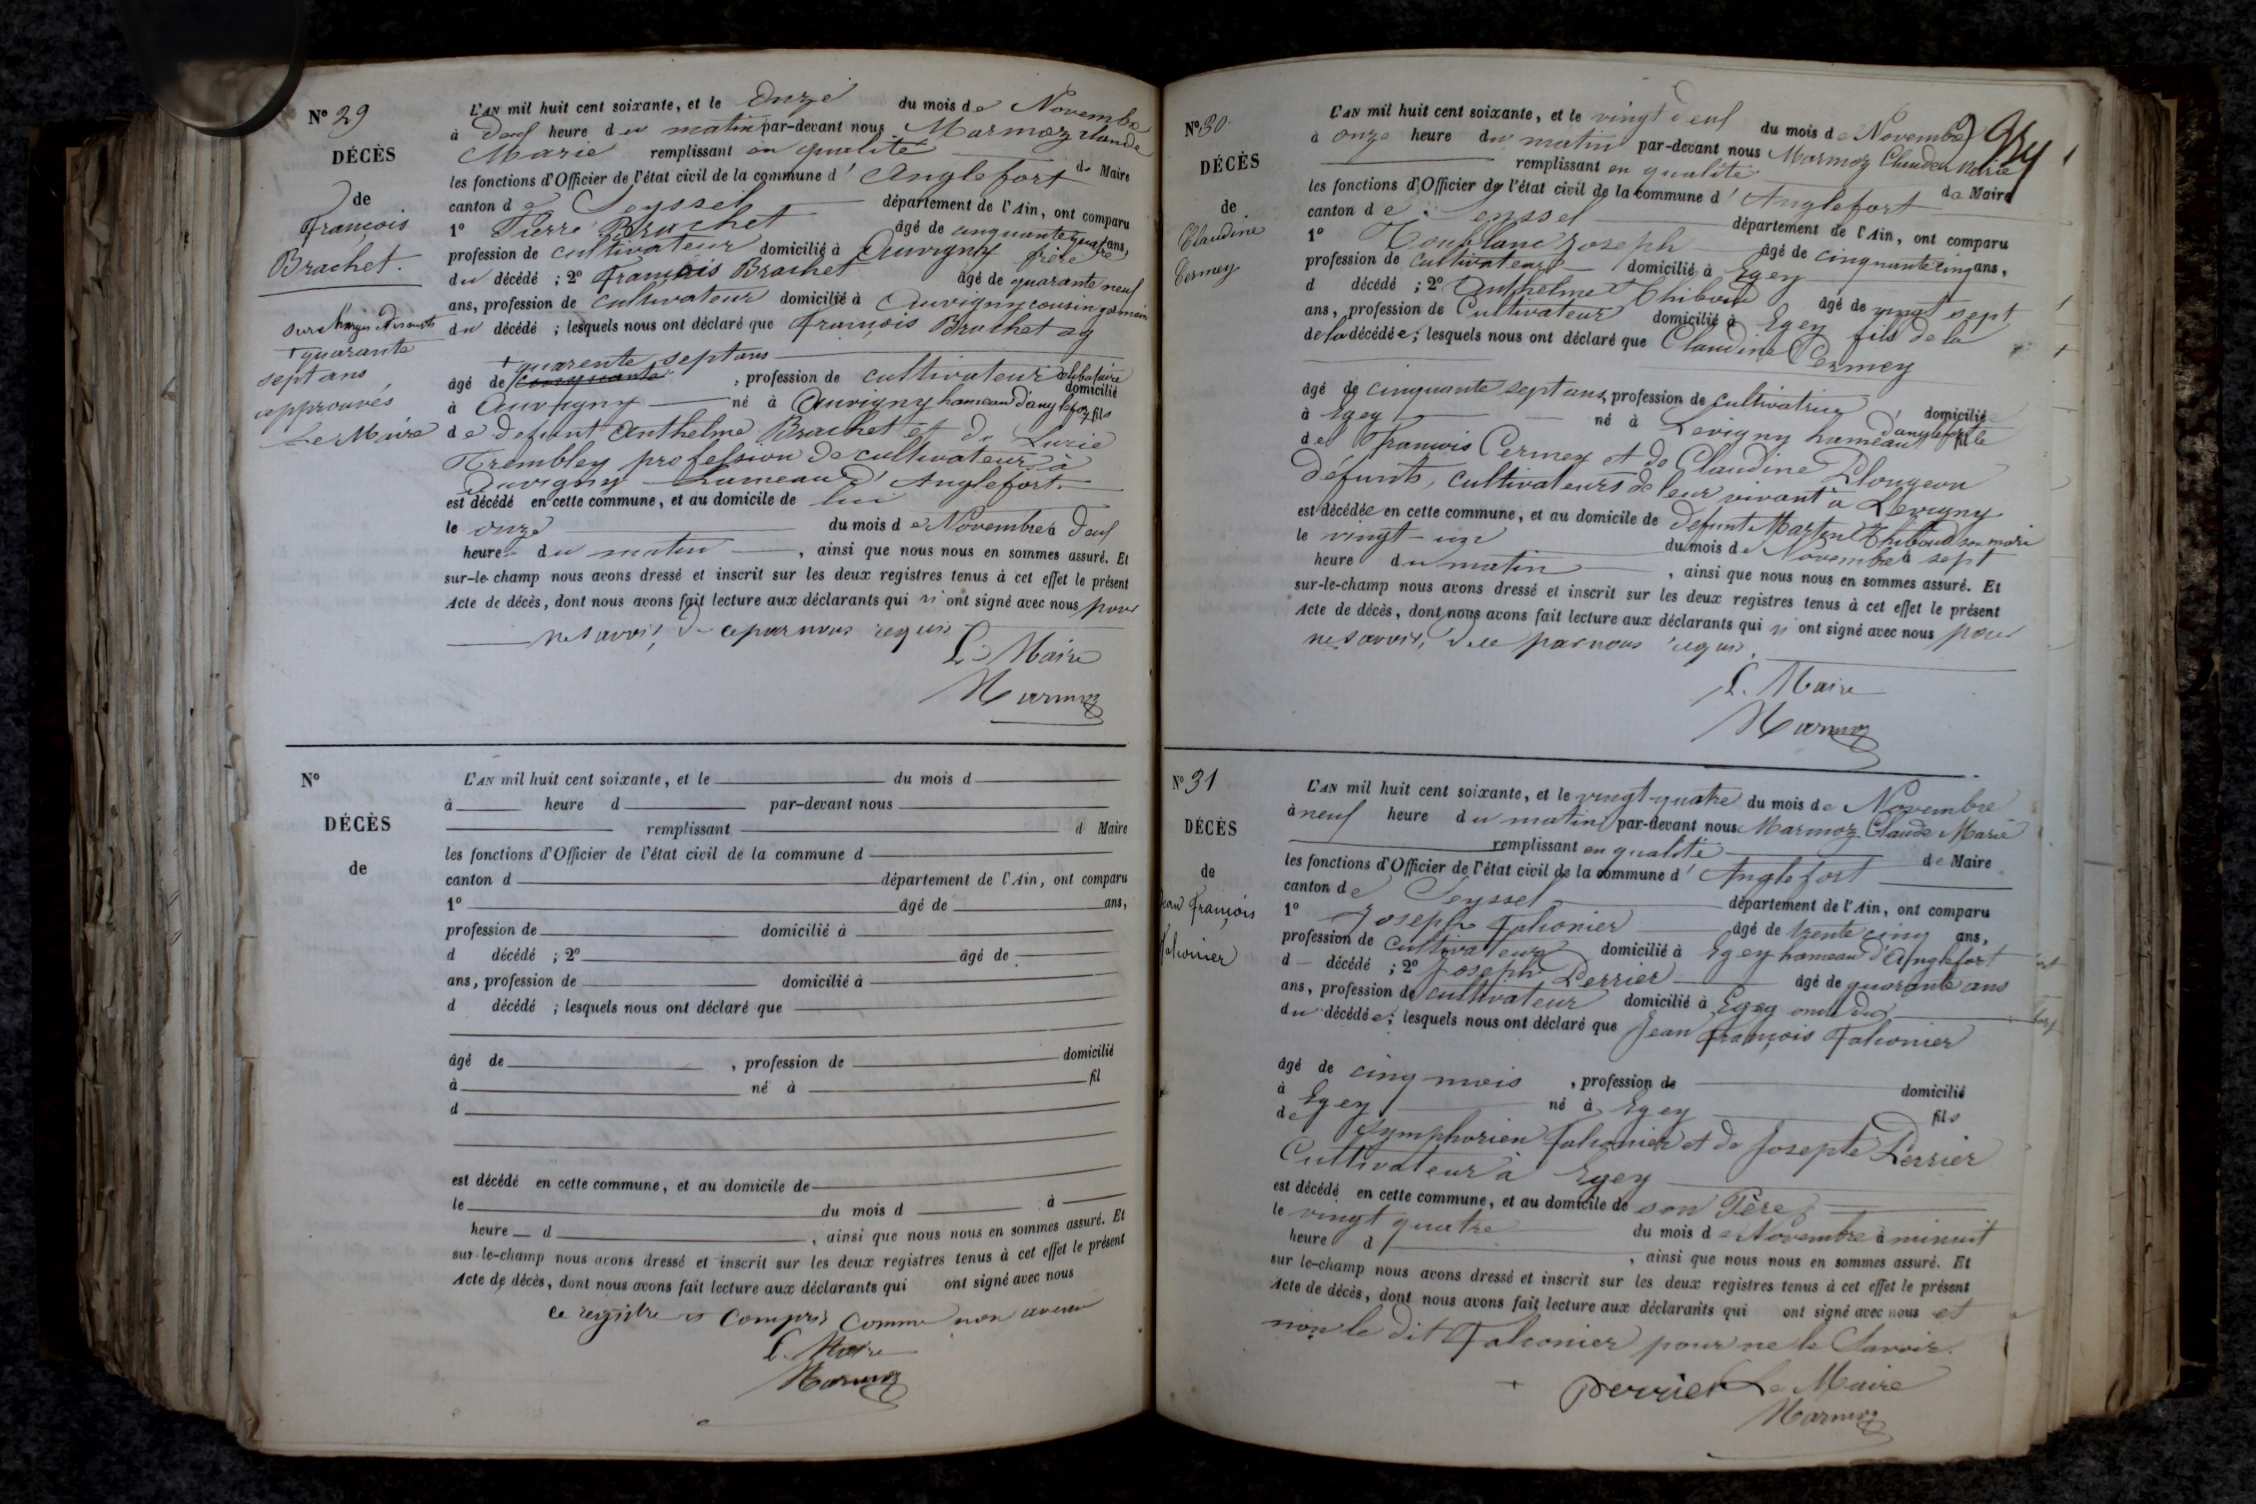 N° 29
DÉCÈS
de
François
Brachet.
quarante
sept ans
approuvés
Le Maire
L'AN mil huit cent soixante, et le onze du mois de Novembre
à heure du matin par-devant nous Marmoz Claude
Marie remplissant en qualité de Maire
les fonctions d'Officier de l'état civil de la commune d'Anglefort
canton de Seyssel département de l'Ain, ont comparu
1° Pierre Brachet âgé de cinquante quatre ans,
profession de cultivateur domicilié à Auvigny frère
du décédé ; 2° François Brachet âgé de quarante neuf
ans, profession de cultivateur domicilié à Auvigny cousin germain
du décédé ; lesquels nous ont déclaré que François Brachet
+ quarente sept ans
âgé de cinquante , profession de cultivateur célibataire domicilié
à Auvigny né à Auvigny hameau d'anglefort fils
de defunt Anthelme Brachet et de Luzie
Trembley profession de cultivateur à
Auvigny hameau d'Anglefort.
est décédé en cette commune, et au domicile de lui
le onze du mois de Novembre à
heure du matin , ainsi que nous nous en sommes assuré. Et
sur-le-champ nous avons dressé et inscrit sur les deux registres tenus à cet effet le présent
Acte de décès, dont nous avons fait lecture aux déclarants qui n'ont signé avec nous pour
ne savoir, de ce par nous requis
Le Maire
Marmoz
N°
DÉCÈS
de
L'AN mil huit cent soixante, et le du mois d
à heure d par-devant nous
remplissant d Maire
les fonctions d'Officier de l'état civil de la commune d
canton d département de l'Ain, ont comparu
1° âgé de ans,
profession de domicilié à
d décédé ; 2° âgé de
ans, profession de domicilié à
d décédé ; lesquels nous ont déclaré que
âgé de , profession de domicilié
à né à fil
d
est décédé en cette commune, et au domicile de
le du mois d à
heure d , ainsi que nous nous en sommes assuré. Et
sur-le-champ nous avons dressé et inscrit sur les deux registres tenus à cet effet le présent
Acte de décès, dont nous avons fait lecture aux déclarants qui ont signé avec nous
ce registre compris comme non avenu
Le Maire
Marmoz
N° 30
DÉCÈS
de
Claudine
Cermey
L'AN mil huit cent soixante, et le vingt deux du mois de Novembre
à onze heure du matin par-devant nous Marmoz Claude Marie
remplissant en qualité de Maire
les fonctions d'Officier de l'état civil de la commune d'Anglefort
canton de Seyssel département de l'Ain, ont comparu
1° Joseph âgé de cinquante cinq ans,
profession de cultivateur domicilié à Egey
d décédé ; 2° Anthelme Thiboud âgé de vingt sept
ans, profession de Cultivateur domicilié à Egey fils de la
de la décédée ; lesquels nous ont déclaré que Claudine Cermey
âgé de cinquante sept ans, profession de cultivatrice domicilié
à Egey né à Levigny hameau d'anglefort fille
de François Cermey et de Claudine Plougeon
défunts, cultivateurs de leur vivant à Levigny
est décédée en cette commune, et au domicile de défunt Martin Thiboud son mari
le vingt-un du mois de Novembre à sept
heure du matin , ainsi que nous nous en sommes assuré. Et
sur-le-champ nous avons dressé et inscrit sur les deux registres tenus à cet effet le présent
Acte de décès, dont nous avons fait lecture aux déclarants qui n'ont signé avec nous pour
ne savoir, de ce par nous requis.
Le Maire
Marmoz
N° 31
DÉCÈS
de
Jean François
Falconier
L'AN mil huit cent soixante, et le vingt-quatre du mois de Novembre
à neuf heure du matin par-devant nous Marmoz Claude Marie
remplissant en qualité de Maire
les fonctions d'Officier de l'état civil de la commune d'Anglefort
canton de Seyssel département de l'Ain, ont comparu
1° Joseph Falconier âgé de trente cinq ans,
profession de cultivateur domicilié à Egey hameau d'Anglefort
d décédé ; 2° Joseph Perrier âgé de quarante ans
ans, profession de cultivateur domicilié à Egey
du décédé ; lesquels nous ont déclaré que Jean François Falconier
âgé de cinq mois , profession de domicilié
à Egey né à Egey fils
de Symphorien Falconier et de Josephte Perrier
Cultivateur à Egey
est décédé en cette commune, et au domicile de son Père
le vingt quatre du mois de Novembre à minuit
heure d , ainsi que nous nous en sommes assuré. Et
sur le-champ nous avons dressé et inscrit sur les deux registres tenus à cet effet le présent
Acte de décès, dont nous avons fait lecture aux déclarants qui ont signé avec nous et
non le dit Falconier pour ne le Savoir.
perrier Le Maire
Marmoz